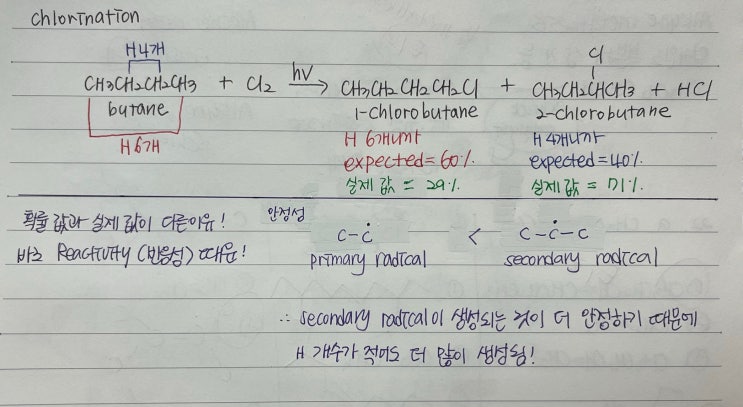 chlorination
H4개
CH3CH2CH2CH3 + Cl2 hν→ CH3CH2CH2CH2Cl + CH3CH2CHCH3 + HCl
Cl
butane
1-chlorobutane
2-chlorobutane
H 6개
H 6개니까
H 4개니까
expected=60%.
expected=40%.
실제 값 = 29%.
실제값 = 71%.
확률 값과 실제 값이 다른이유!
바로 Reactivity (반응성) 때문!
안정성
C-Ċ < C-Ċ-C
primary radical
secondary radical
∴ secondary radical이 생성되는 것이 더 안정하기 때문에
H 개수가 적어도 더 많이 생성됨!